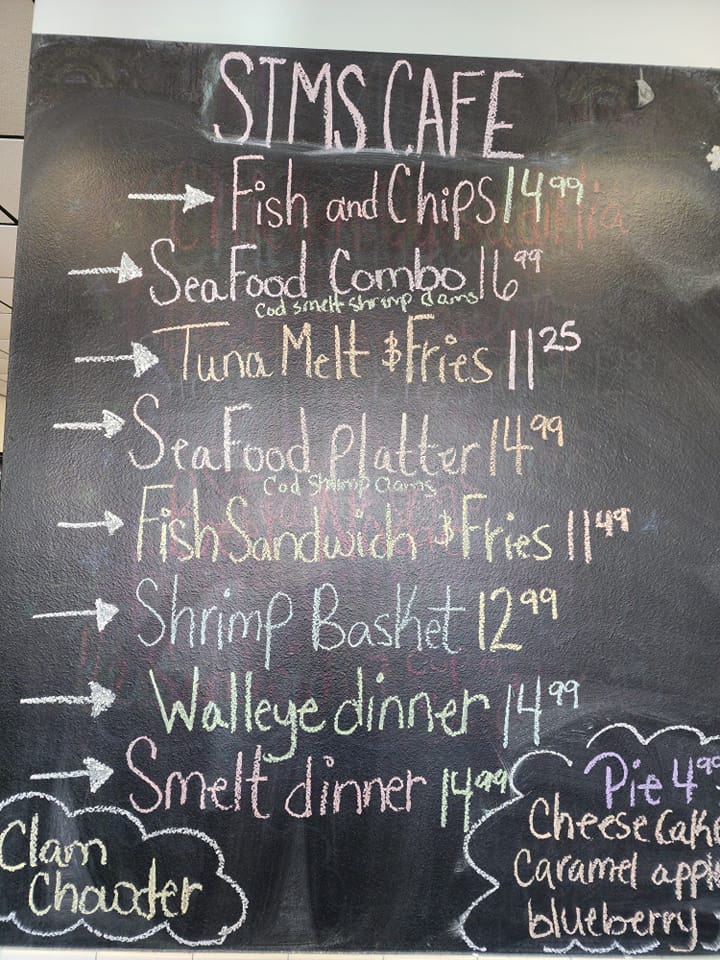 SIMS CAFE
Fish and Chips 14.99
SeaFood Combo 16.99
Cod smelt shrimp clams
Tuna Melt & Fries 11.25
SeaFood Platter 14.99
Cod Shrimp Clams
Fish Sandwich & Fries 11.49
Shrimp Basket 12.99
Walleye dinner 14.99
Smelt dinner 14.99
Clam
Chowder
Pie 4.99
Cheese Cake
Caramel
blueberry